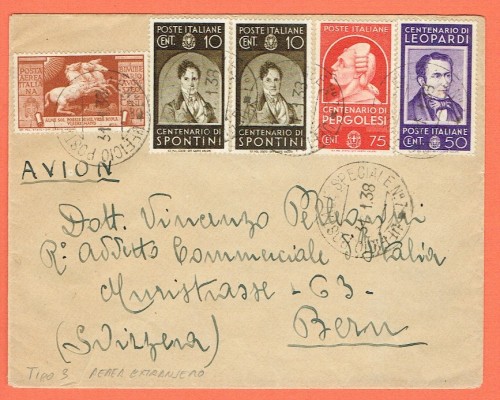 POSTA AEREA ITALIANA
POSTE ITALIANE
CENT. 10
CENTENARIO DI
SPONTINI
POSTE ITALIANE
CENT. 10
CENTENARIO DI
SPONTINI
POSTE ITALIANE
CENTENARIO DI
PERGOLESI
CENT. 75
CENTENARIO DI
LEOPARDI
POSTE ITALIANE
CENT. 50
AVION
SPECIALE No
31.1.38
Dott. Vincenzo Pellegrini
R° addetto Commerciale Italia
Muristrasse - 63 -
Bern
(Svizzera)
TIPO 3 AEREA